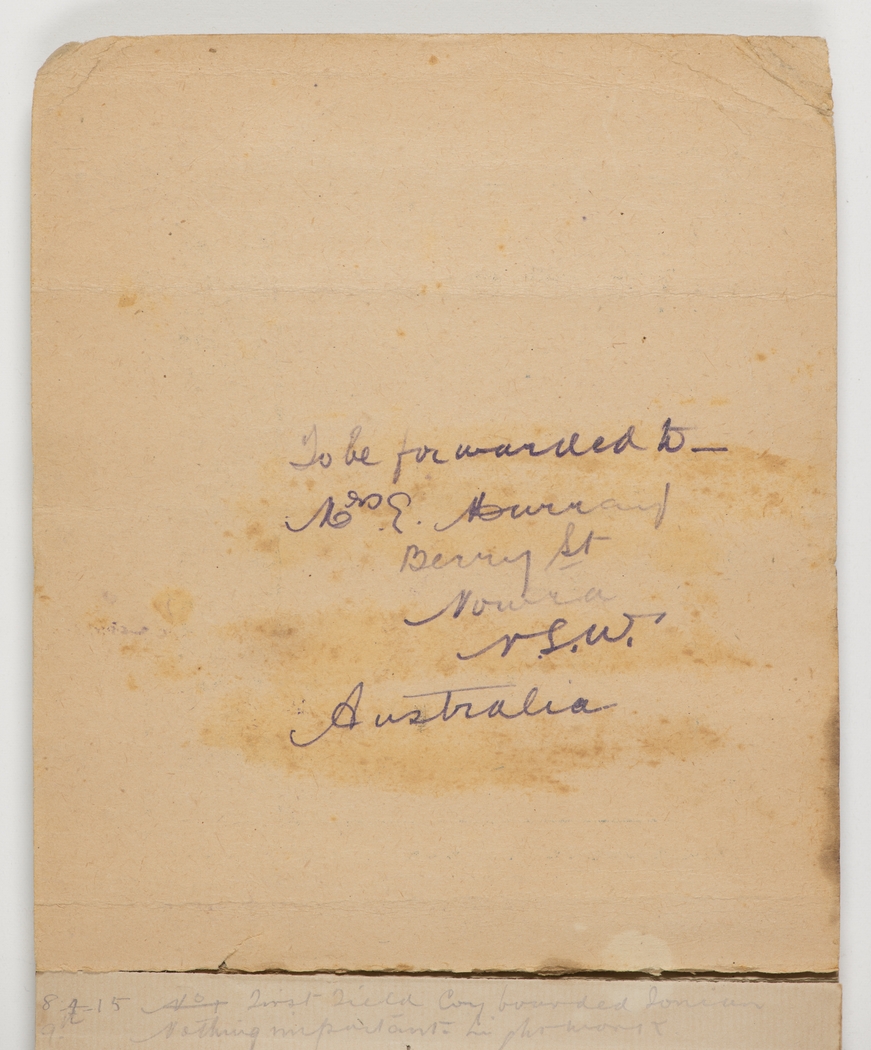 To be forwarded to —
Mrs E. Murray
Berry St
Nowra
N.S.W.
Australia
8 4-15 No 1 First Field Coy boarded Ionian
Nothing important in